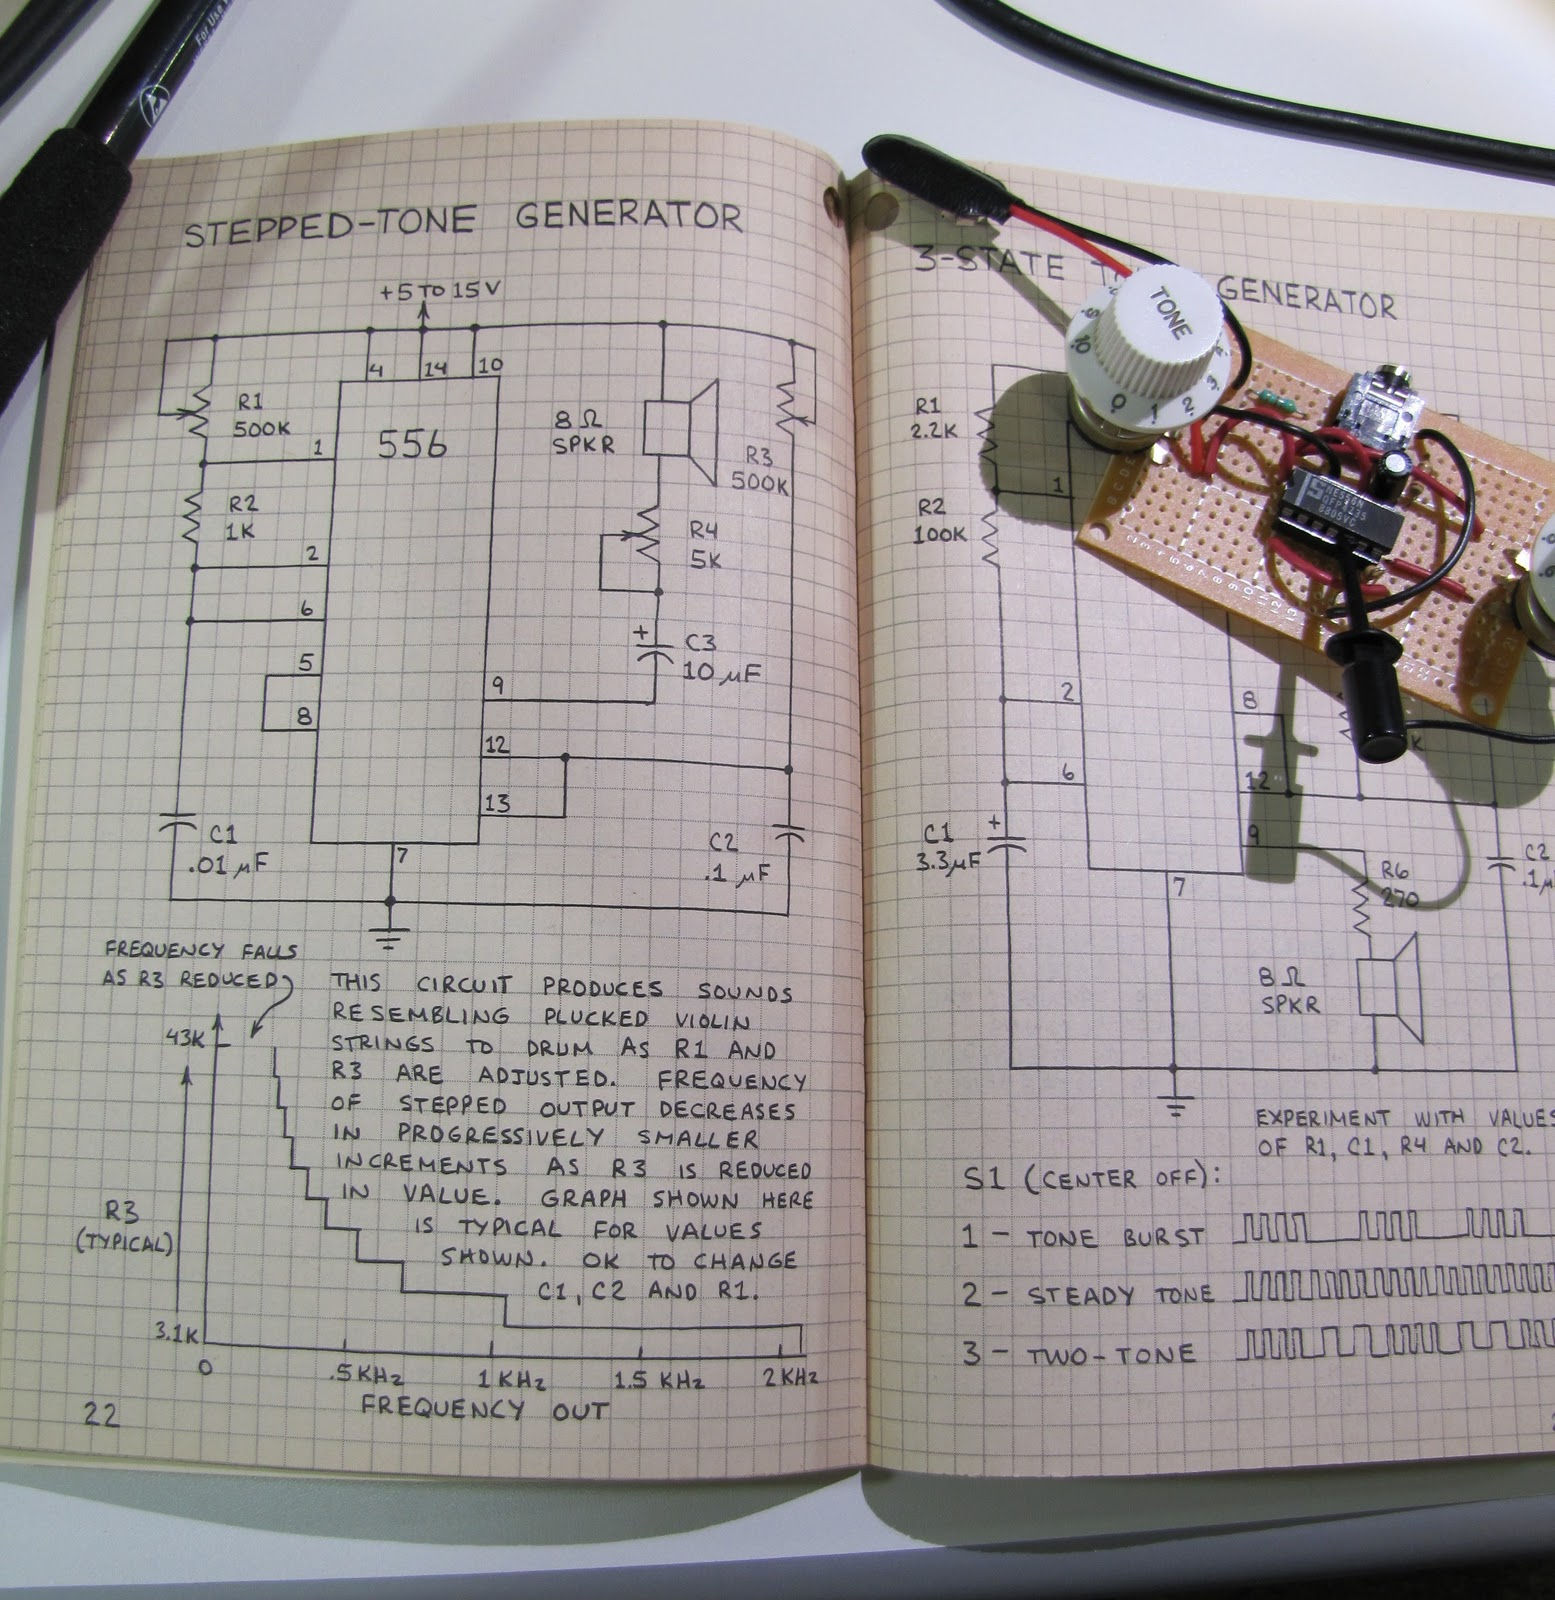 For Use
STEPPED-TONE GENERATOR
+5 TO 15 V
4
14
10
R1
500K
556
8 Ω
SPKR
R3
500K
1
R2
1K
R4
5K
2
6
+
C3
10 μF
5
9
8
12
13
C1
.01 μF
7
C2
.1 μF
FREQUENCY FALLS
AS R3 REDUCED
43K
R3
(TYPICAL)
3.1K
0
.5 KHz
1 KHz
1.5 KHz
2 KHz
FREQUENCY OUT
THIS CIRCUIT PRODUCES SOUNDS
RESEMBLING PLUCKED VIOLIN
STRINGS TO DRUM AS R1 AND
R3 ARE ADJUSTED. FREQUENCY
OF STEPPED OUTPUT DECREASES
IN PROGRESSIVELY SMALLER
INCREMENTS AS R3 IS REDUCED
IN VALUE. GRAPH SHOWN HERE
IS TYPICAL FOR VALUES
SHOWN. OK TO CHANGE
C1, C2 AND R1.
22
3-STATE GENERATOR
TONE
10
0
1
2
3
R1
2.2K
1
R2
100K
2
8
6
12
9
+
C1
3.3μF
7
R6
270
C2
8 Ω
SPKR
EXPERIMENT WITH VALUES
OF R1, C1, R4 AND C2.
S1 (CENTER OFF):
1 - TONE BURST
2 - STEADY TONE
3 - TWO-TONE